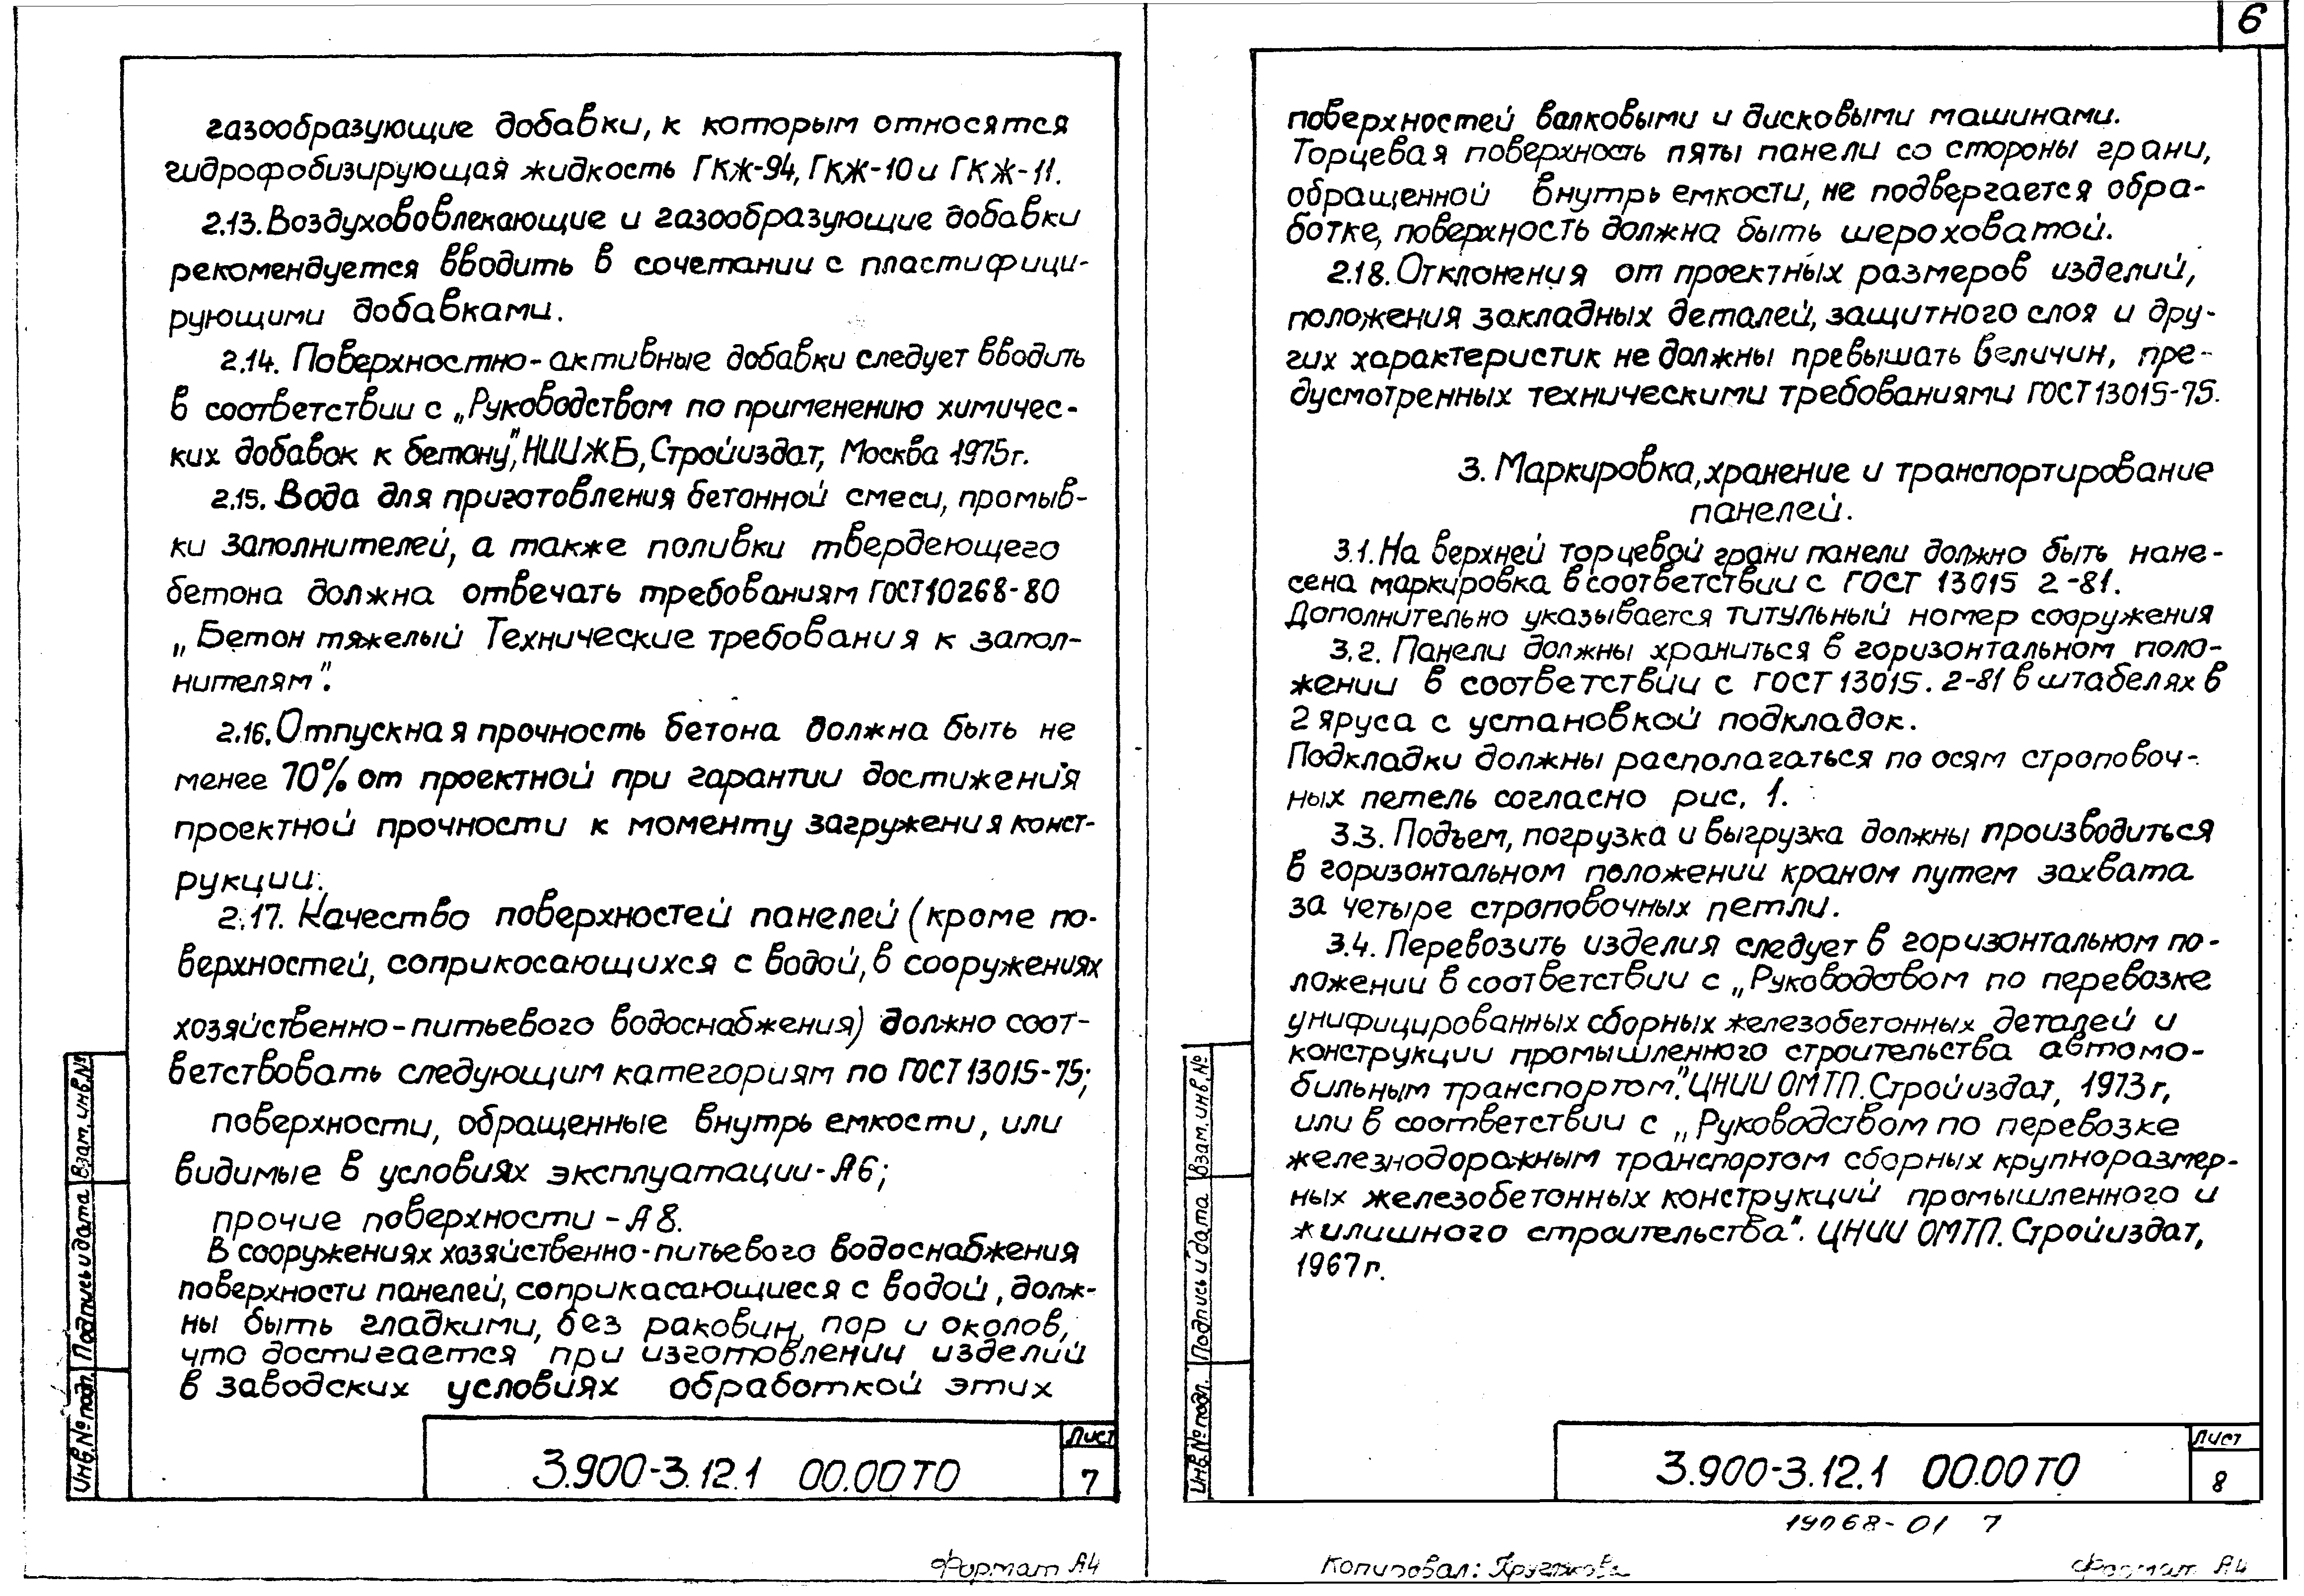 газообразующие добавки, к которым относятся
гидрофобизирующая жидкость ГКЖ-94, ГКЖ-10 и ГКЖ-11.
2.13. Воздухововлекающие и газообразующие добавки
рекомендуется вводить в сочетании с пластифици-
рующими добавками.
2.14. Поверхностно-активные добавки следует вводить
в соответствии с „Руководством по применению химичес-
ких добавок к бетону", НИИЖБ, Стройиздат, Москва 1975г.
2.15. Вода для приготовления бетонной смеси, промыв-
ки заполнителей, а также поливки твердеющего
бетона должна отвечать требованиям ГОСТ 10268-80
„Бетон тяжелый Технические требования к запол-
нителям".
2.16. Отпускная прочность бетона должна быть не
менее 70% от проектной при гарантии достижения
проектной прочности к моменту загружения конст-
рукции.
2.17. Качество поверхностей панелей (кроме по-
верхностей, соприкасающихся с водой, в сооружениях
хозяйственно-питьевого водоснабжения) должно соот-
ветствовать следующим категориям по ГОСТ 13015-75;
поверхности, обращенные внутрь емкости, или
видимые в условиях эксплуатации-А6;
прочие поверхности - А8.
В сооружениях хозяйственно-питьевого водоснабжения
поверхности панелей, соприкасающиеся с водой, долж-
ны быть гладкими, без раковин, пор и околов,
что достигается при изготовлении изделий
в заводских условиях обработкой этих
Взам. инв. №
Подпись и дата
Инв. № подл.
3.900-3.12.1 00.00ТО
Лист
7
Формат А4
6
поверхностей валковыми и дисковыми машинами.
Торцевая поверхность пяты панели со стороны грани,
обращенной внутрь емкости, не подвергается обра-
ботке, поверхность должна быть шероховатой.
2.18. Отклонения от проектных размеров изделий,
положения закладных деталей, защитного слоя и дру-
гих характеристик не должны превышать величин, пре-
дусмотренных техническими требованиями ГОСТ 13015-75.
3. Маркировка, хранение и транспортирование
панелей.
3.1. На верхней торцевой грани панели должно быть нане-
сена маркировка в соответствии с ГОСТ 13015 2-81.
Дополнительно указывается титульный номер сооружения
3.2. Панели должны храниться в горизонтальном поло-
жении в соответствии с ГОСТ 13015. 2-81 в штабелях в
2 яруса с установкой подкладок.
Подкладки должны располагаться по осям строповоч-
ных петель согласно рис. 1.
3.3. Подъем, погрузка и выгрузка должны производиться
в горизонтальном положении краном путем захвата
за четыре строповочных петли.
3.4. Перевозить изделия следует в горизонтальном по-
ложении в соответствии с „Руководством по перевозке
унифицированных сборных железобетонных деталей и
конструкции промышленного строительства автомо-
бильным транспортом". ЦНИИ ОМТП. Стройиздат, 1973г,
или в соответствии с „Руководством по перевозке
железнодорожным транспортом сборных крупноразмер-
ных железобетонных конструкций промышленного и
жилишного строительства". ЦНИИ ОМТП. Стройиздат,
1967г.
Взам. инв. №
Подпись и дата
Инв. № подл.
3.900-3.12.1 00.00ТО
Лист
8
19068-01 7
Копировал:
Формат А4